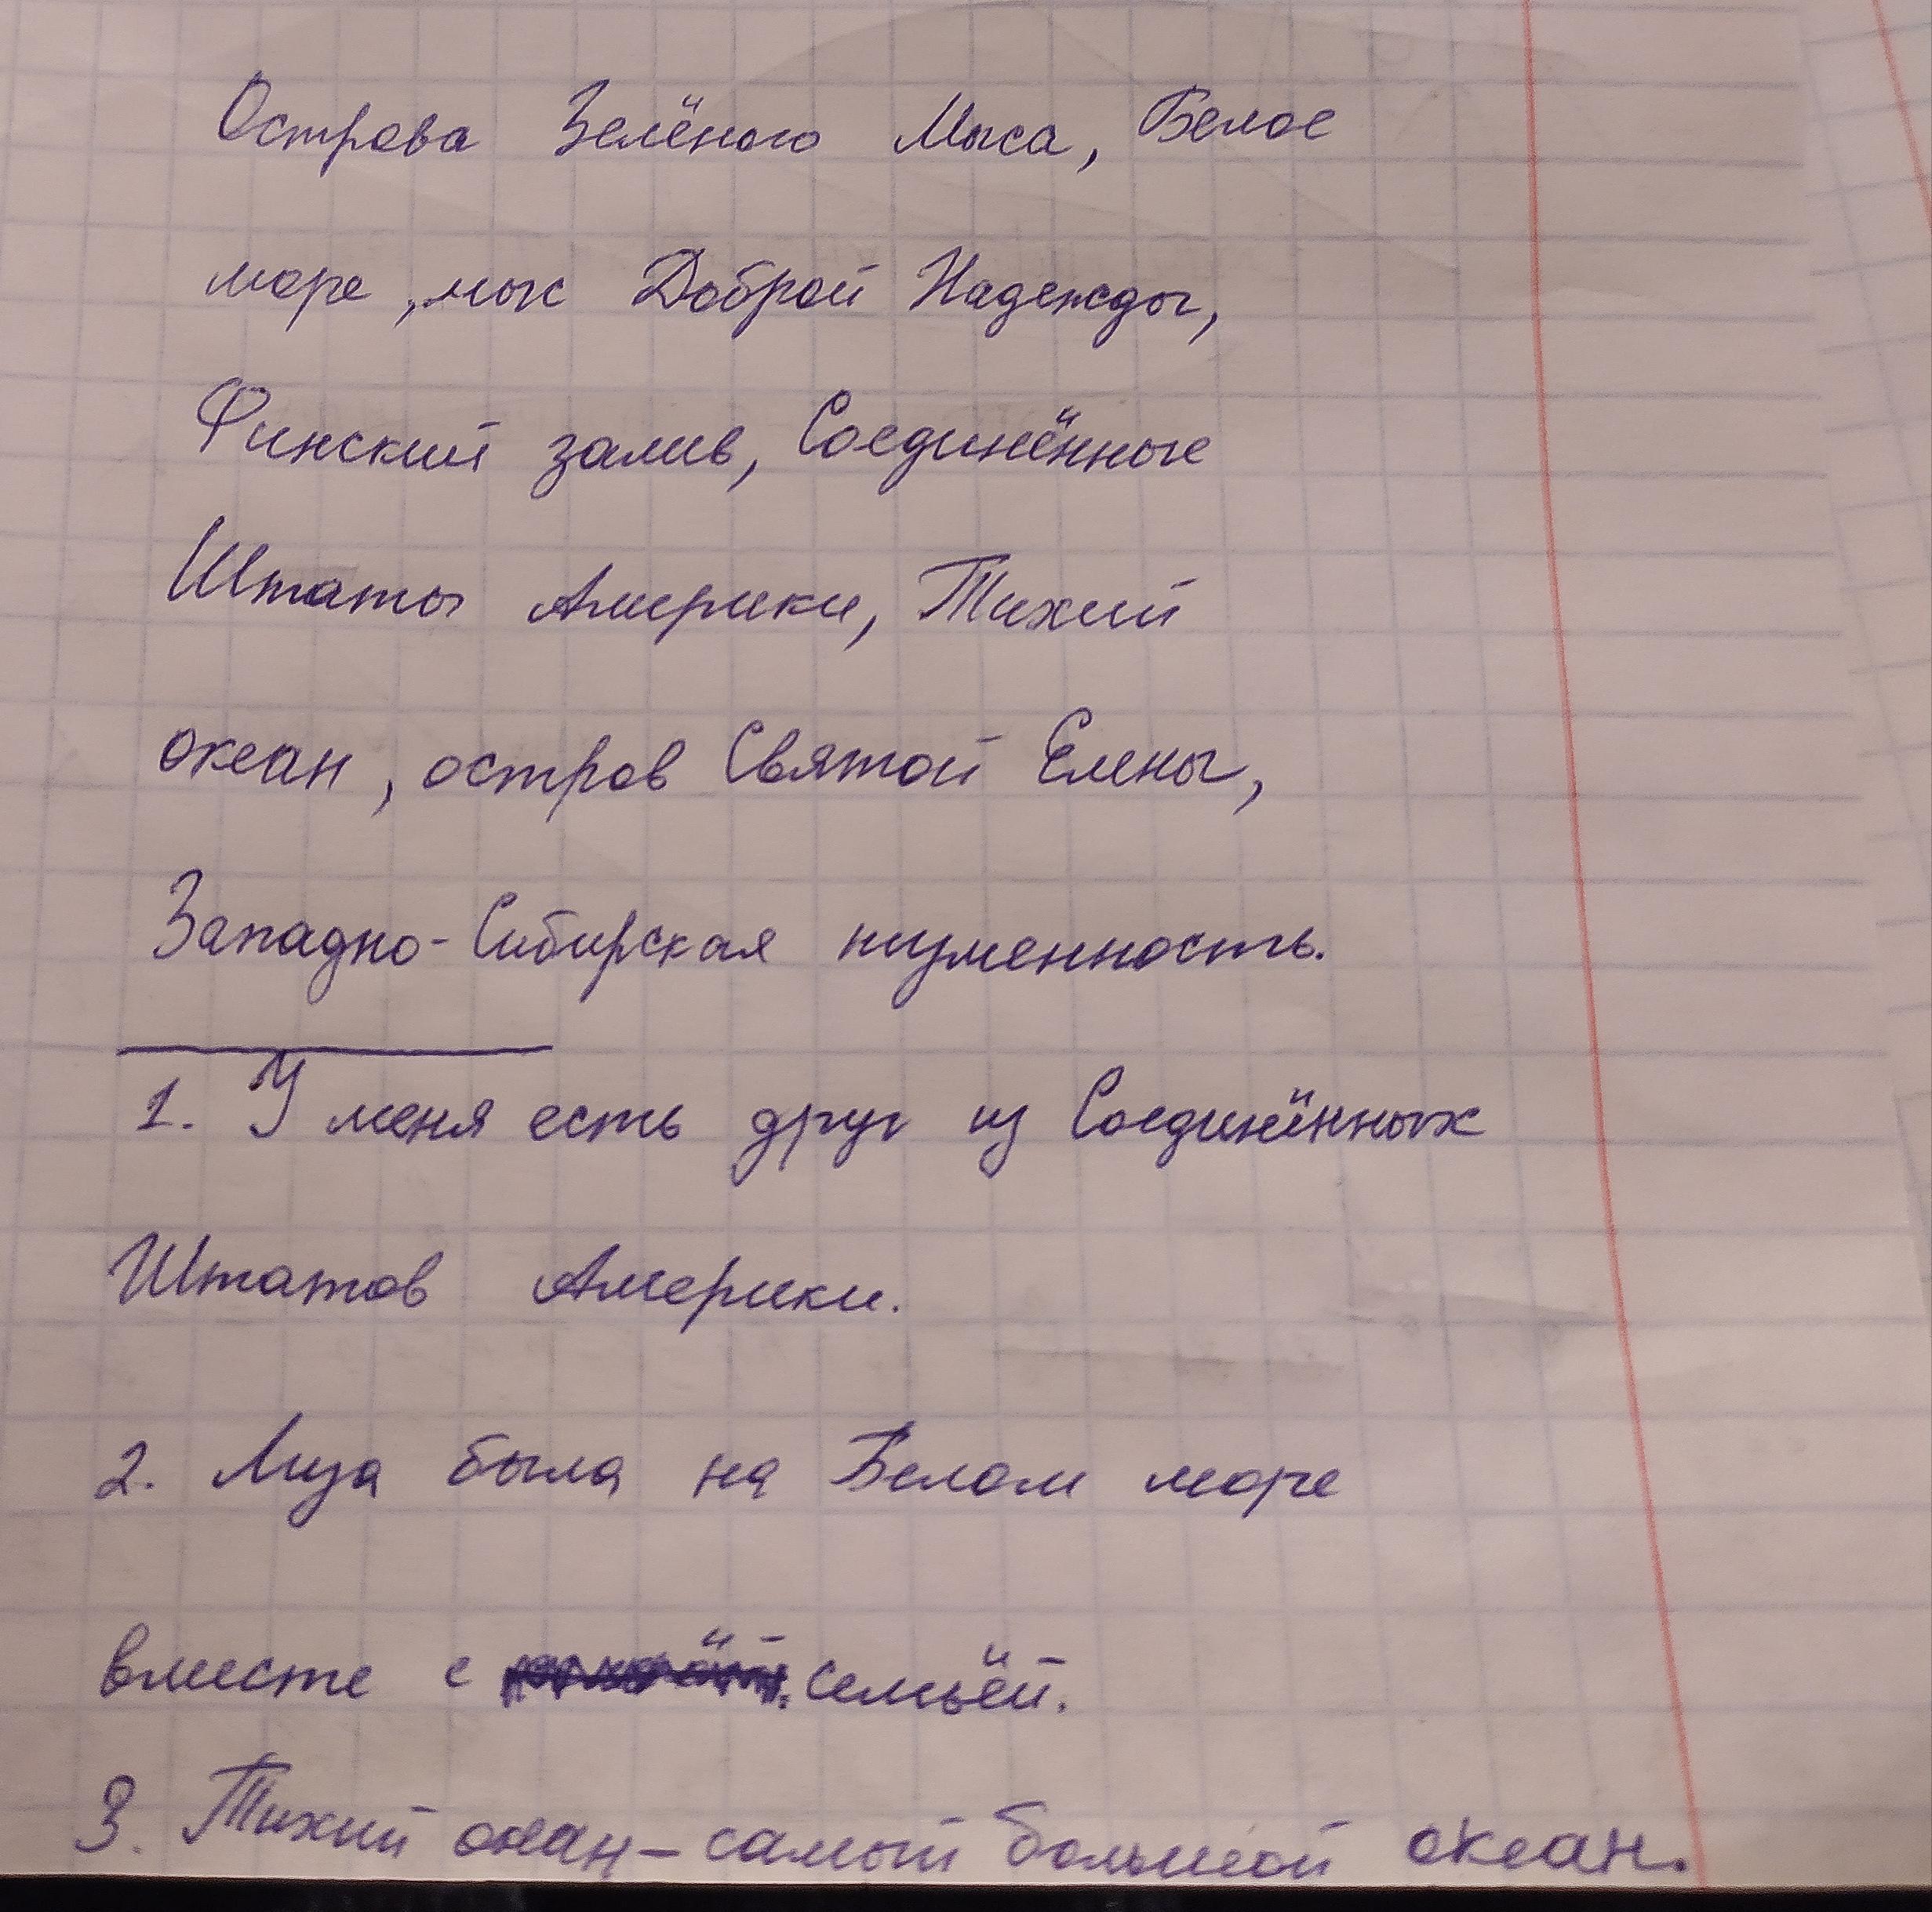 Острова Зелёного Мыса, Белое
море, мыс Доброй Надежды,
Финский залив, Соединённые
Штаты Америки, Тихий
океан, остров Святой Елены,
Западно-Сибирская низменность.
1. У меня есть друг из Соединённых
Штатов Америки.
2. Лиза была на Белом море
вместе с семьёй.
3. Тихий океан – самый большой океан.